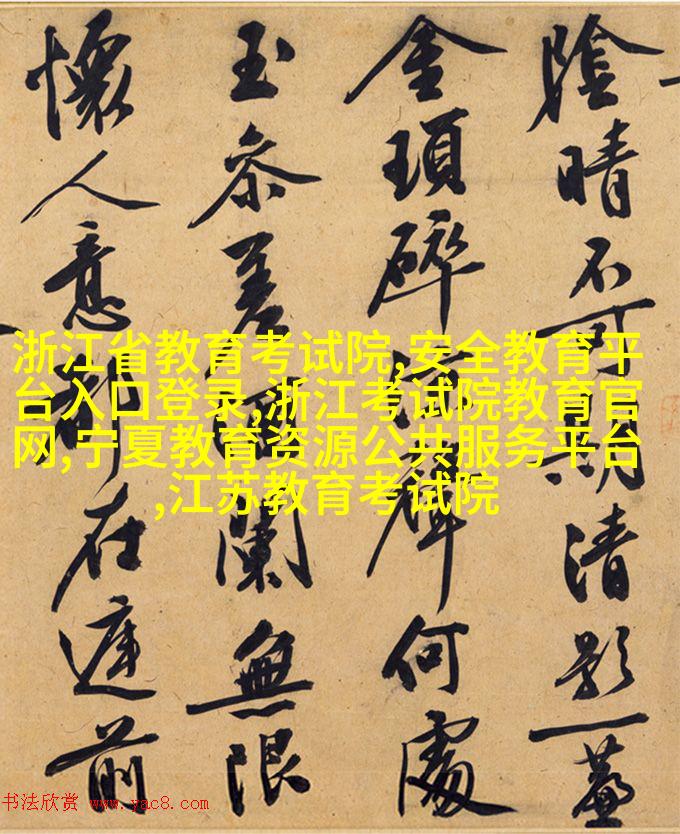 陰晴不可期清影一
金瑣碎何處
玉參差闌無限
懷人意都在前
浙江省教育考试院,安全教育平
台入口登录,浙江考试院教育官
网,宁夏教育资源公共服务平台
,江苏教育考试院
书法欣赏 www.yac8.com